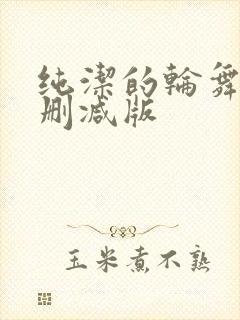 纯潔的輪舞
删减版
玉米煮不熟